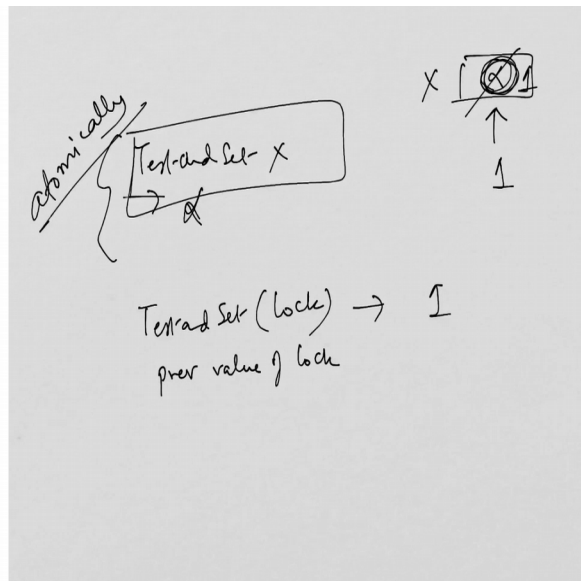 atomically
Test-and Set X
α
X α 1
1
Test and Set (lock) → 1
prev value of lock